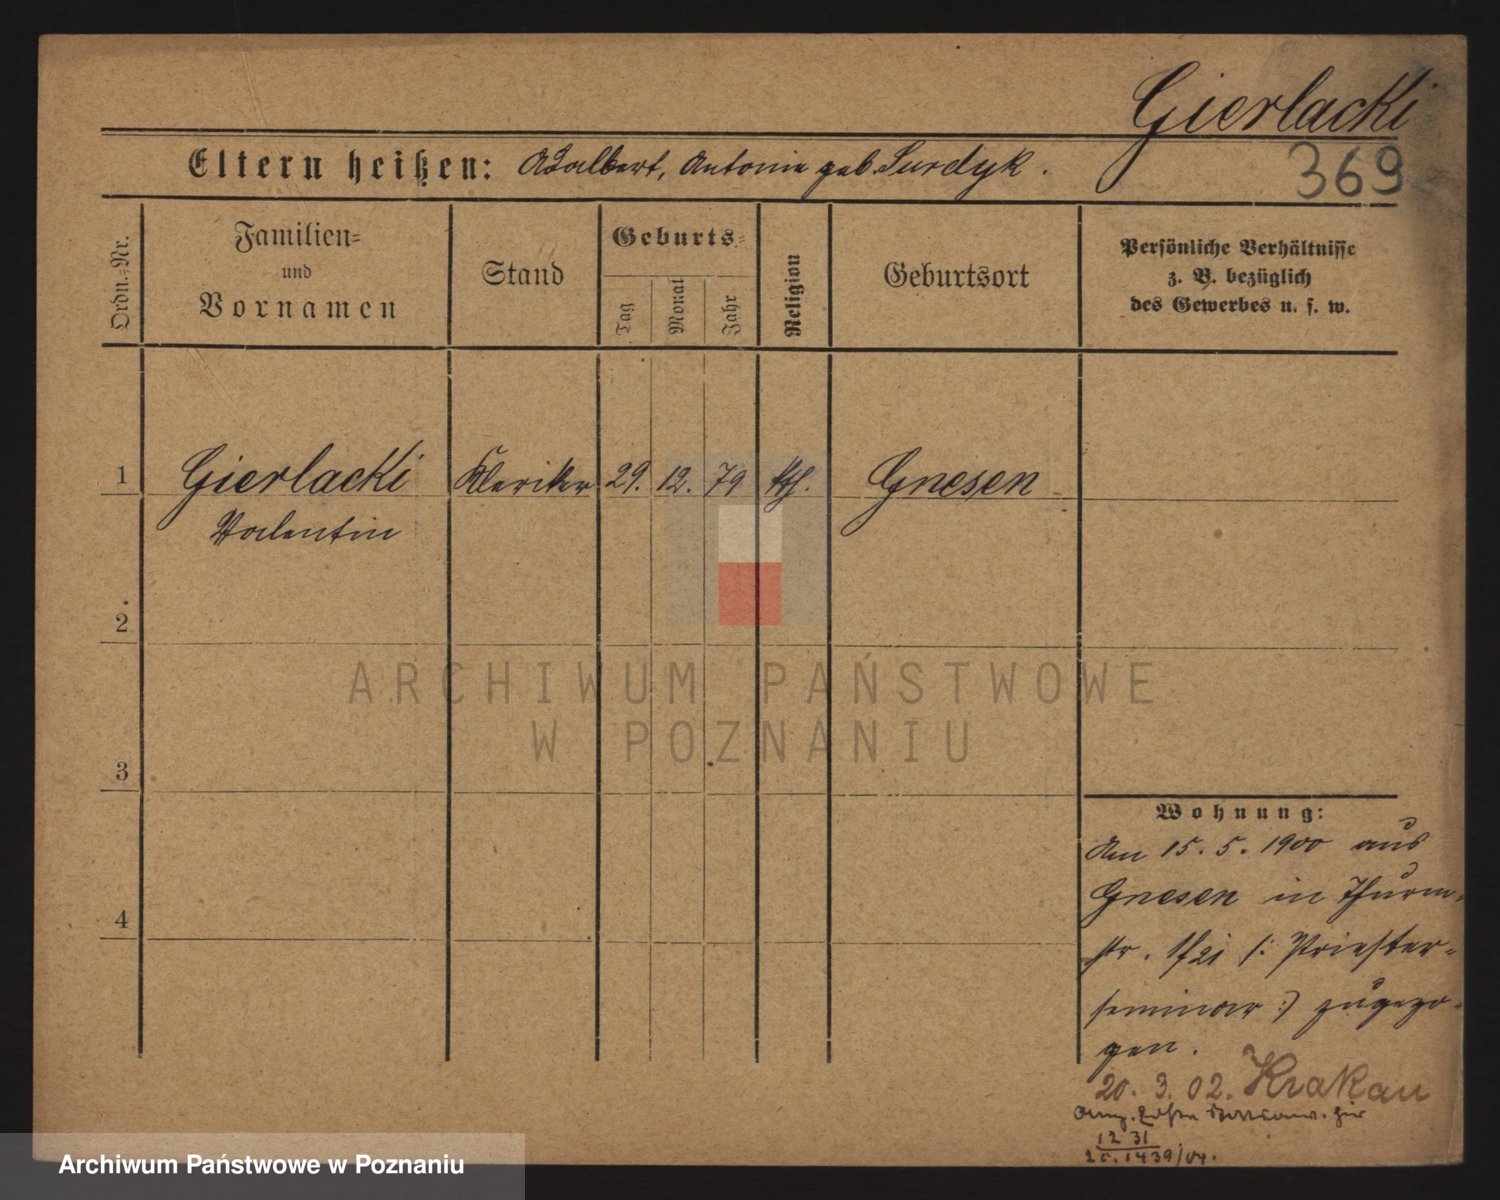 Gierlacki
369
Eltern heißen: Adalbert, Antonie geb. Surdyk.
Ordn.=Nr.
Familien=
und
Vornamen
Stand
Geburts=
Tag
Monat
Jahr
Religion
Geburtsort
Persönliche Verhältnisse
z. B. bezüglich
des Gewerbes u. s. w.
1 Gierlacki Kleriker 29. 12. 79 kth. Gnesen
Valentin
2
3
4
Wohnung:
Am 15. 5. 1900 aus
Gnesen in Thurm-
str. 1/2 (: Priester-
seminar :) zugezo-
gen.
20. 3. 02. Krakau
12 31
1439/04.
ARCHIWUM PAŃSTWOWE
W POZNANIU
Archiwum Państwowe w Poznaniu